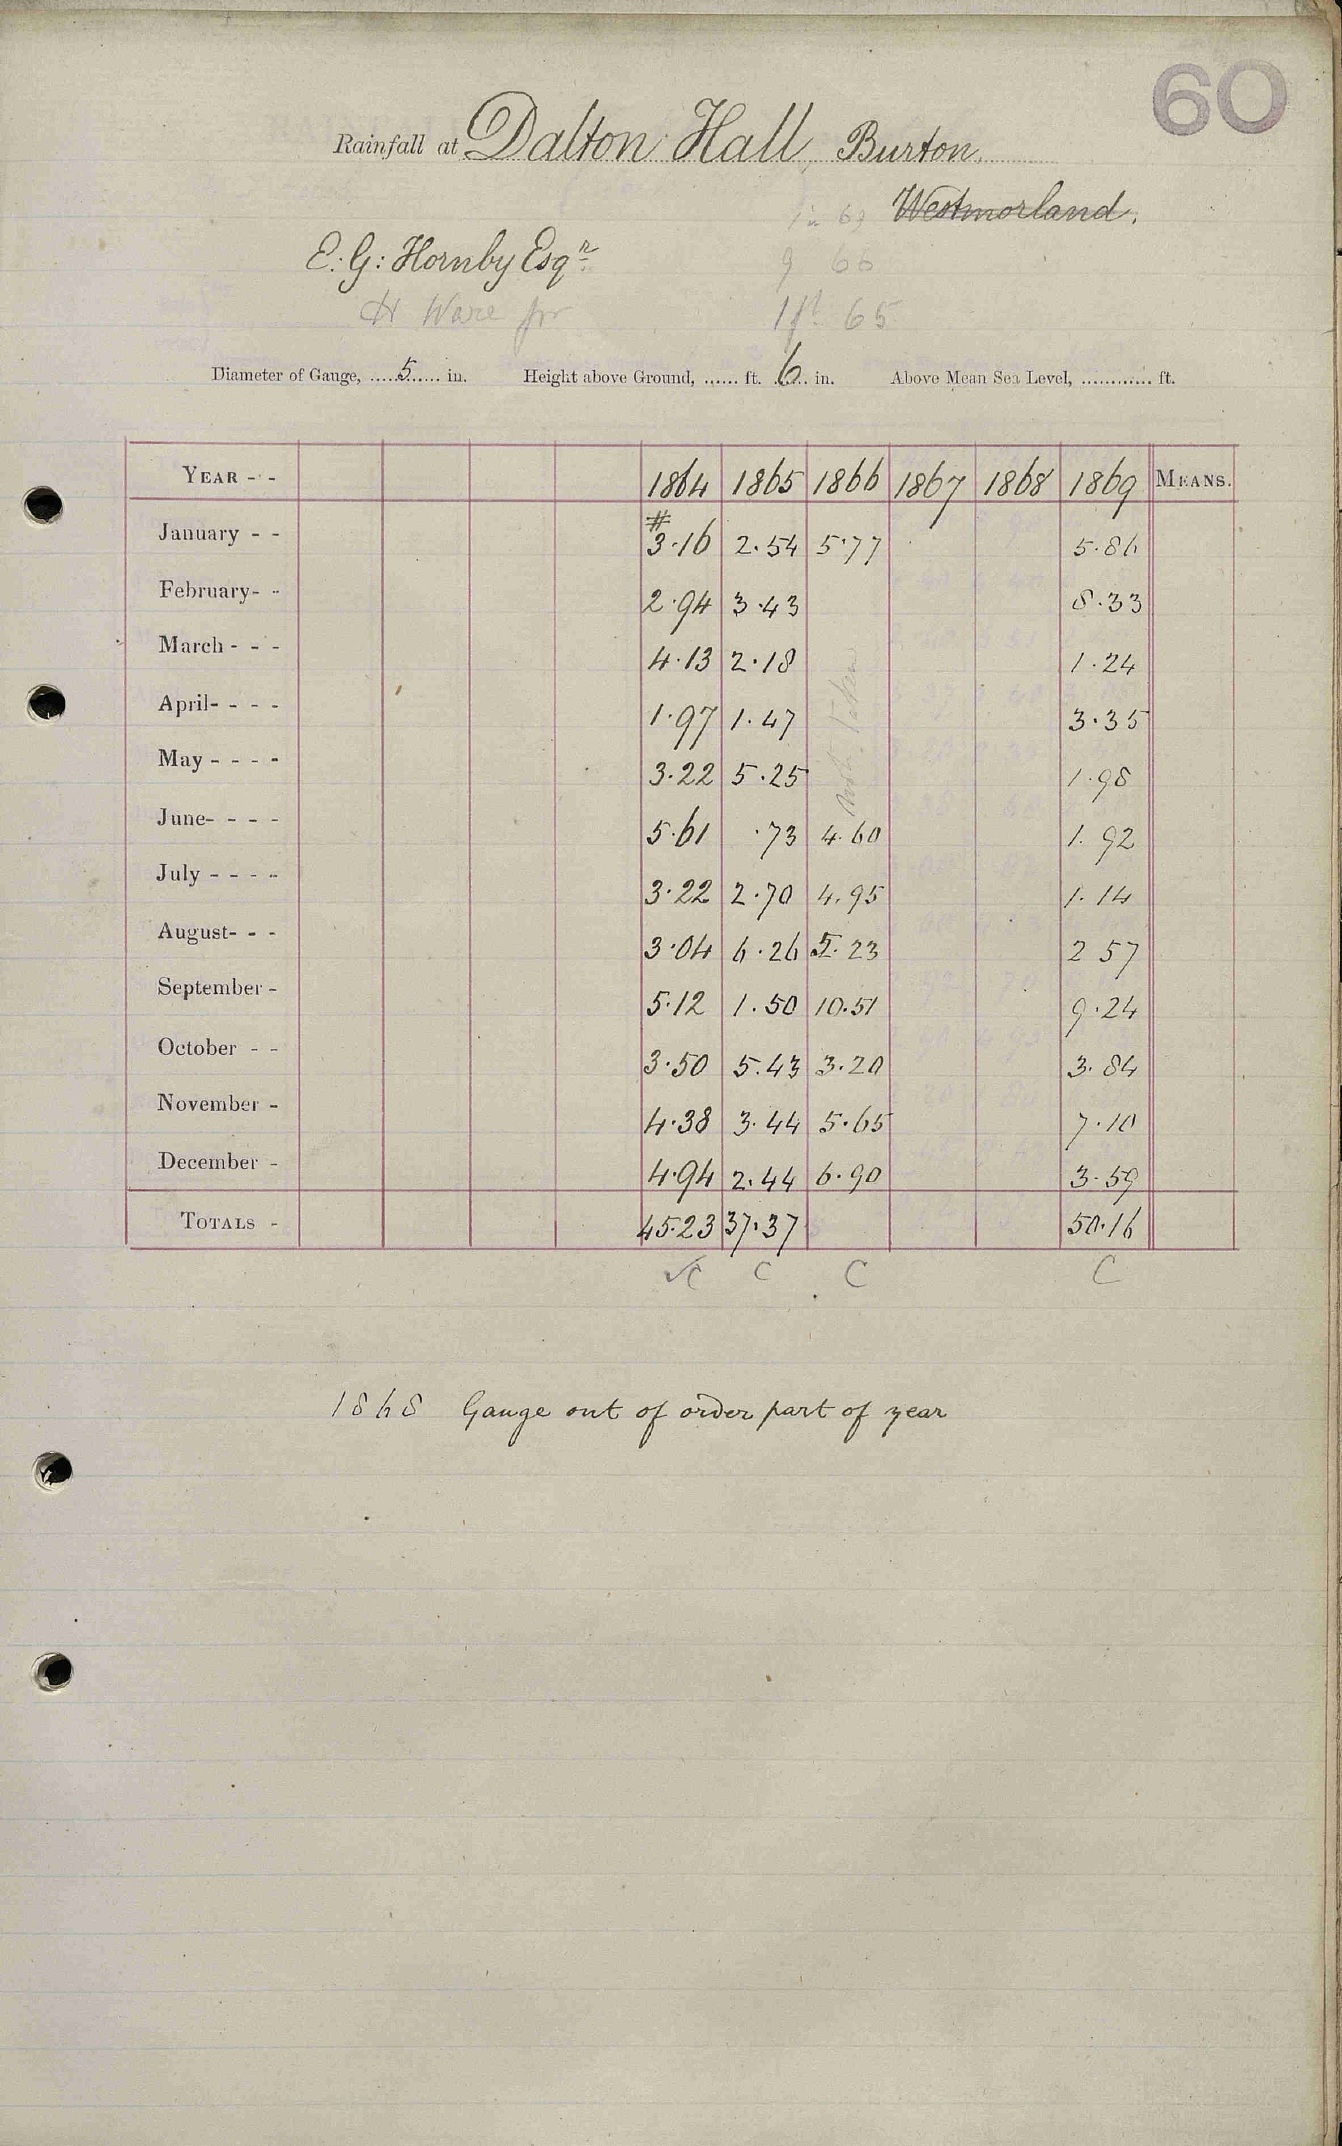 60
Rainfall at Dalton Hall, Burton.
Westmorland.
E. G: Hornby Esqr
H Ware for
1 in 69
9 66
1 ft 65
Diameter of Gauge, 5 in. Height above Ground, ...... ft. 6 in. Above Mean Sea Level, ............ ft.
YEAR - - 1864 1865 1866 1867 1868 1869 MEANS.
#
January - - 3.16 2.54 5.77 5.86
February- - 2.94 3.43 8.33
March - - - 4.13 2.18 1.24
April- - - - 1.97 1.47 3.35
May - - - - 3.22 5.25 1.98
not taken
June- - - - 5.61 .73 4.60 1.92
July - - - - 3.22 2.70 4.95 1.14
August- - - 3.04 6.26 5.23 2 57
September - 5.12 1.50 10.51 9.24
October - - 3.50 5.43 3.20 3.84
November - 4.38 3.44 5.65 7.10
December - 4.94 2.44 6.90 3.59
TOTALS - 45.23 37.37 50.16
✓C C C C
1868 Gauge out of order part of year